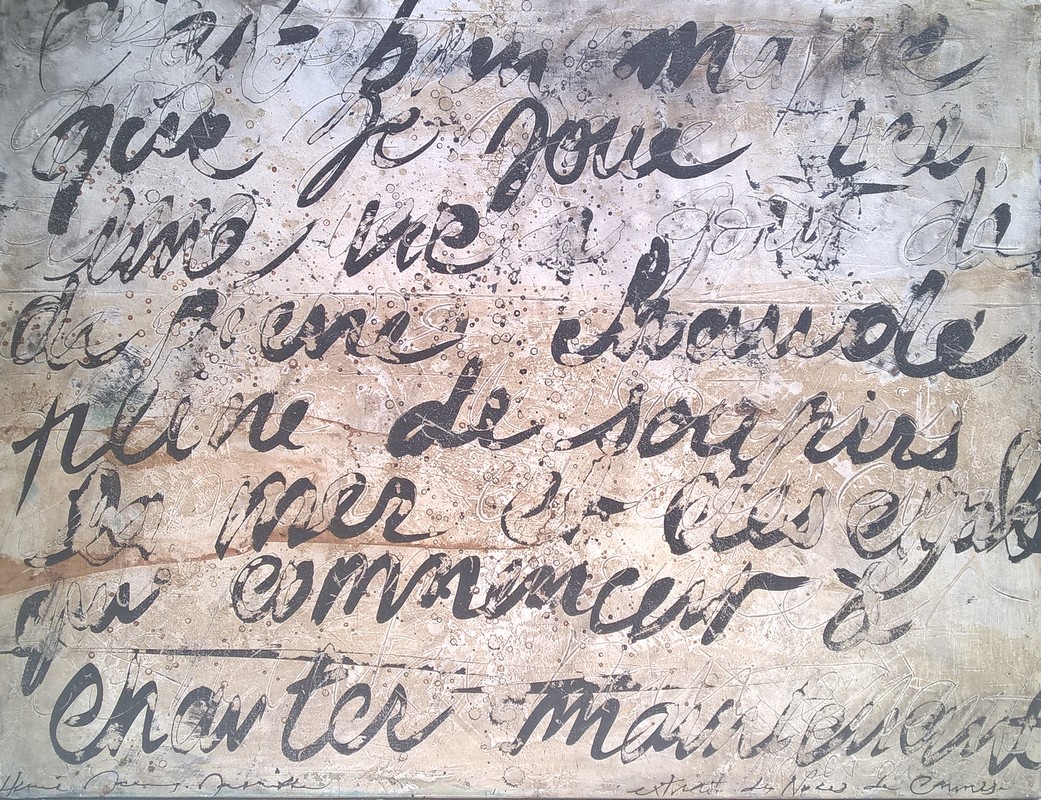 C'est bien ma vie
que je joue ici
une vie à goût de
de pierre chaude
pleine de soupirs
la mer et des cigales
qui commencent à
chanter maintenant
extrait de Noces de Camus